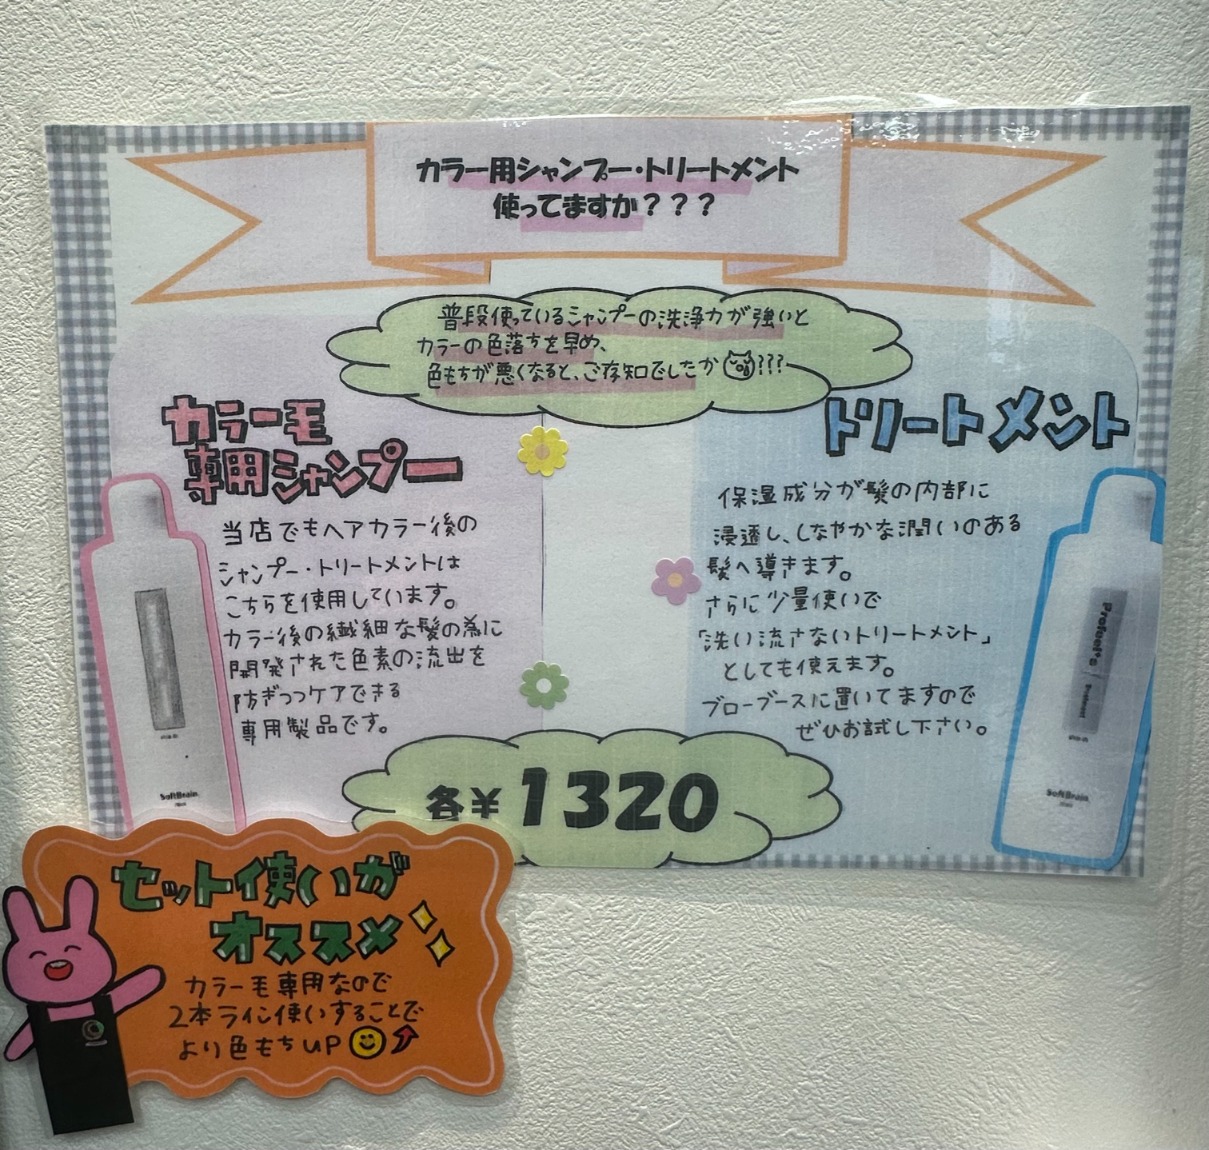 カラー用シャンプー・トリートメント
使ってますか？？？
普段使っているシャンプーの洗浄力が強いと
カラーの色落ちを早め、
色もちが悪くなると、ご存知でしたか???
カラー毛
専用シャンプー
当店でもヘアカラー後の
シャンプー・トリートメントは
こちらを使用しています。
カラー後の繊細な髪の為に
開発された色素の流出を
防ぎつつケアできる
専用製品です。
SoftBrain
トリートメント
保湿成分が髪の内部に
浸透し、しなやかな潤いのある
髪へ導きます。
さらに少量使いで
「洗い流さないトリートメント」
としても使えます。
ブローブースに置いてますので
ぜひお試し下さい。
Profael's
Treatment
SoftBrain
各¥1320
セット使いが
オススメ
カラー毛専用なので
2本ライン使いすることで
より色もちUP